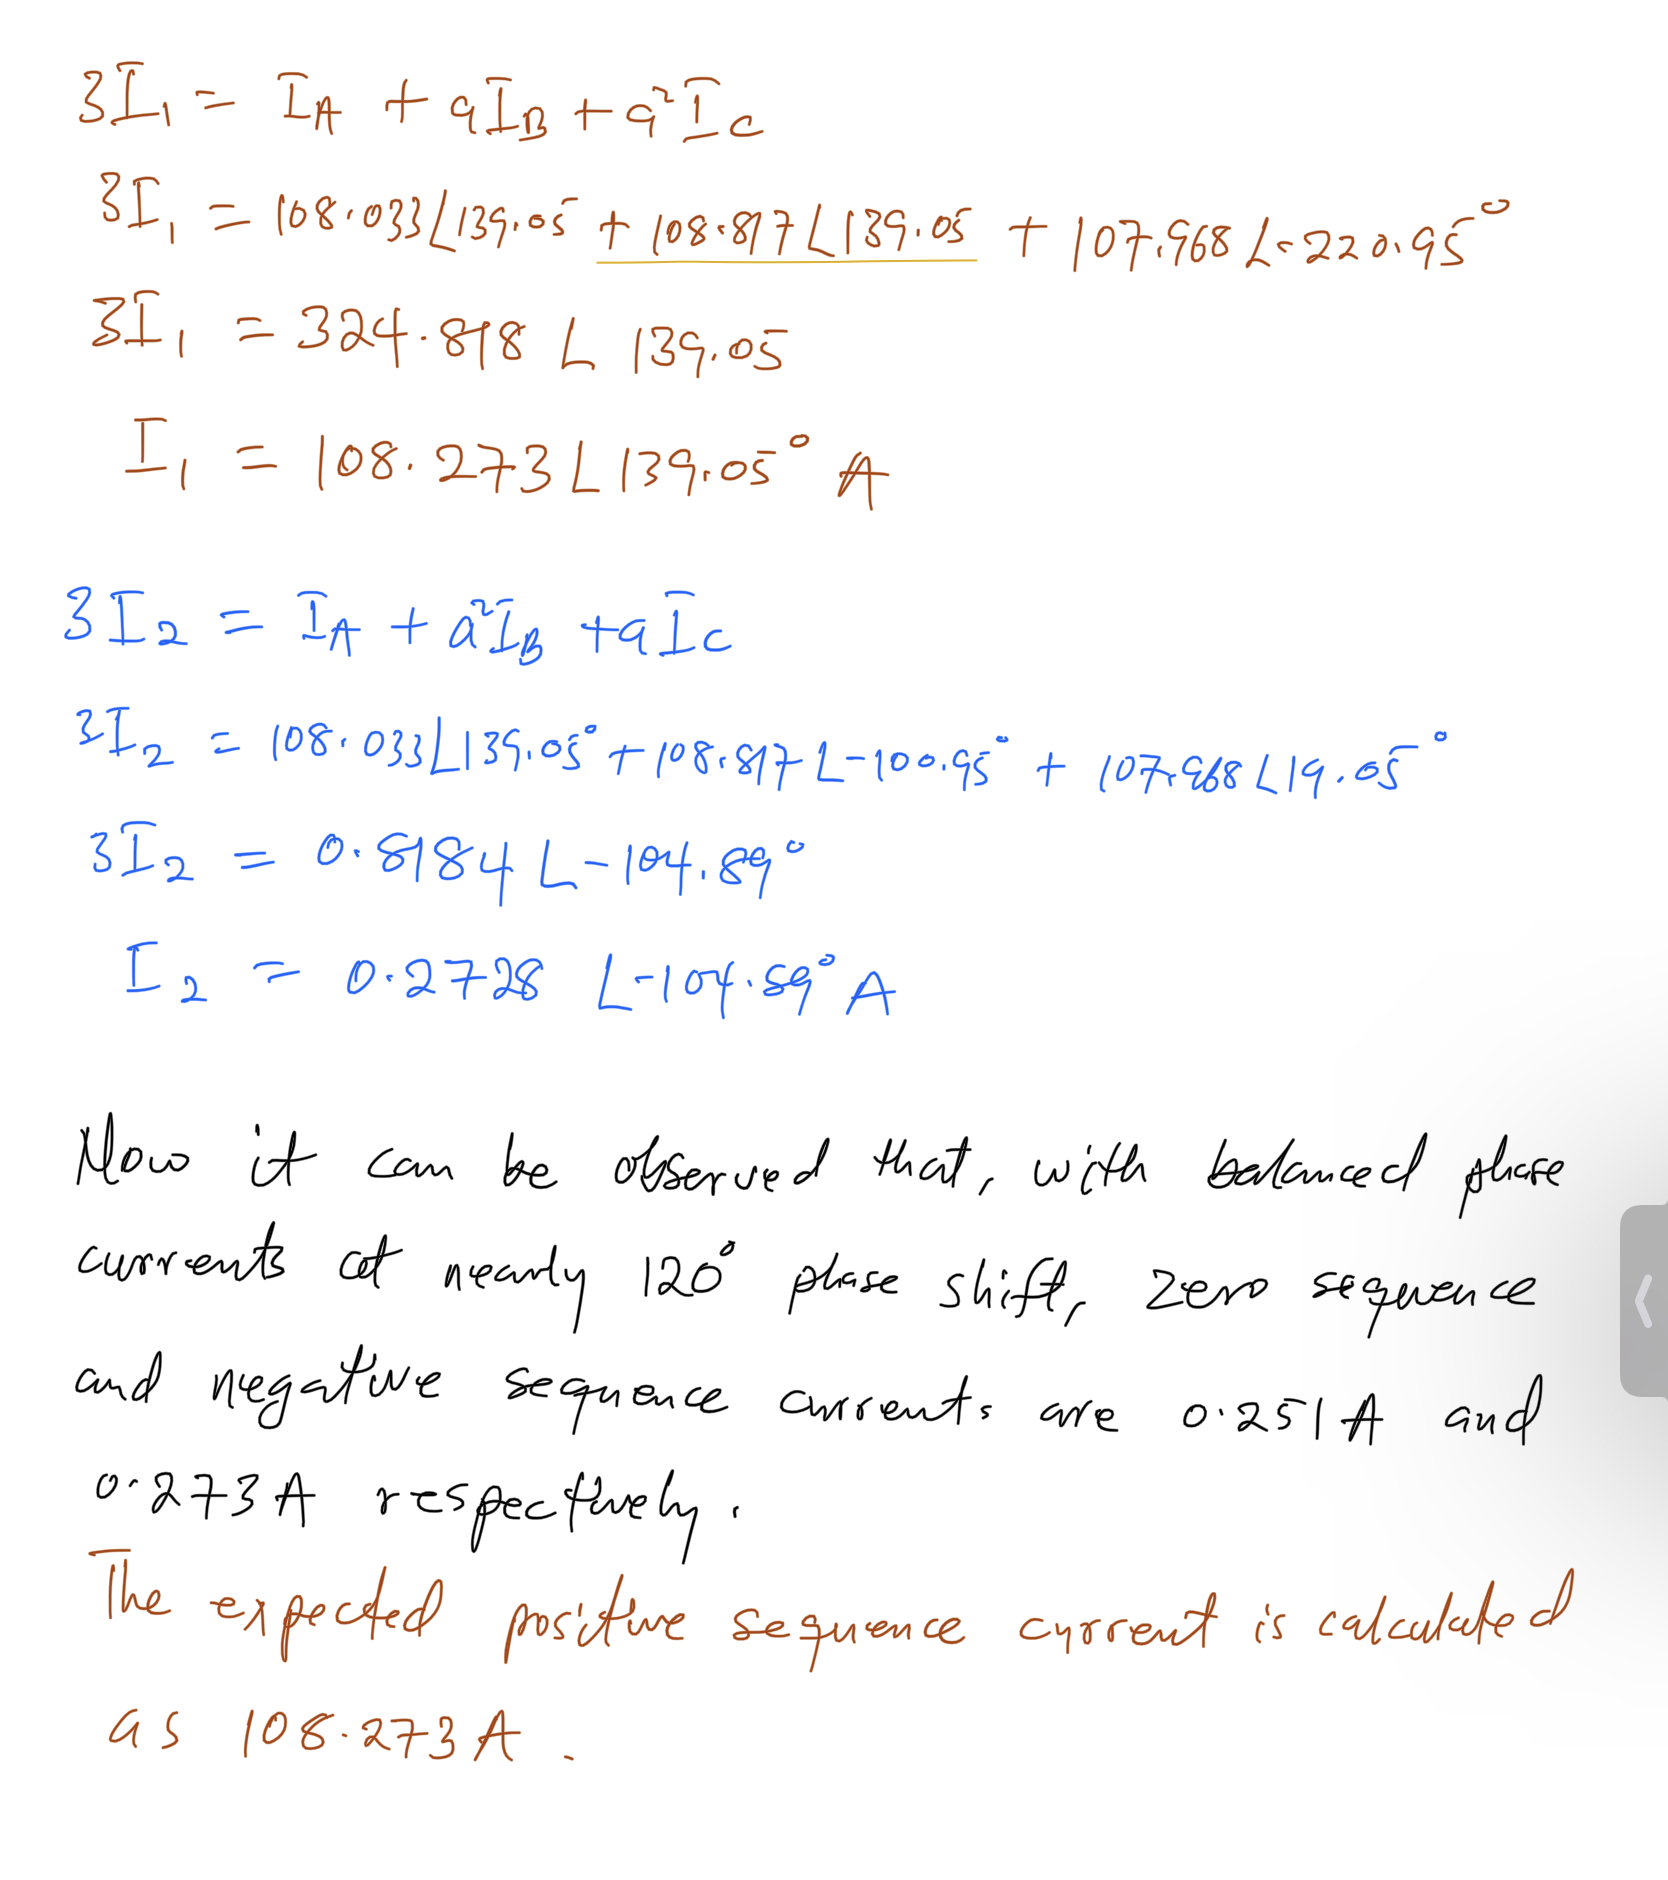 3I₁ = I_A + aI_B + a²I_C
3I₁ = 108.033∠139.05 + 108.817∠139.05 + 107.968∠-220.95°
3I₁ = 324.818 ∠ 139.05
I₁ = 108.273∠139.05° A
3I₂ = I_A + a²I_B + aI_C
3I₂ = 108.033∠139.05° + 108.817∠-100.95° + 107.968∠19.05°
3I₂ = 0.8184 ∠-104.89°
I₂ = 0.2728 ∠-104.89° A
Now it can be observed that, with balanced phase
currents at nearly 120° phase shift, zero sequence
and negative sequence currents are 0.251A and
0.273A respectively.
The expected positive sequence current is calculated
as 108.273A.